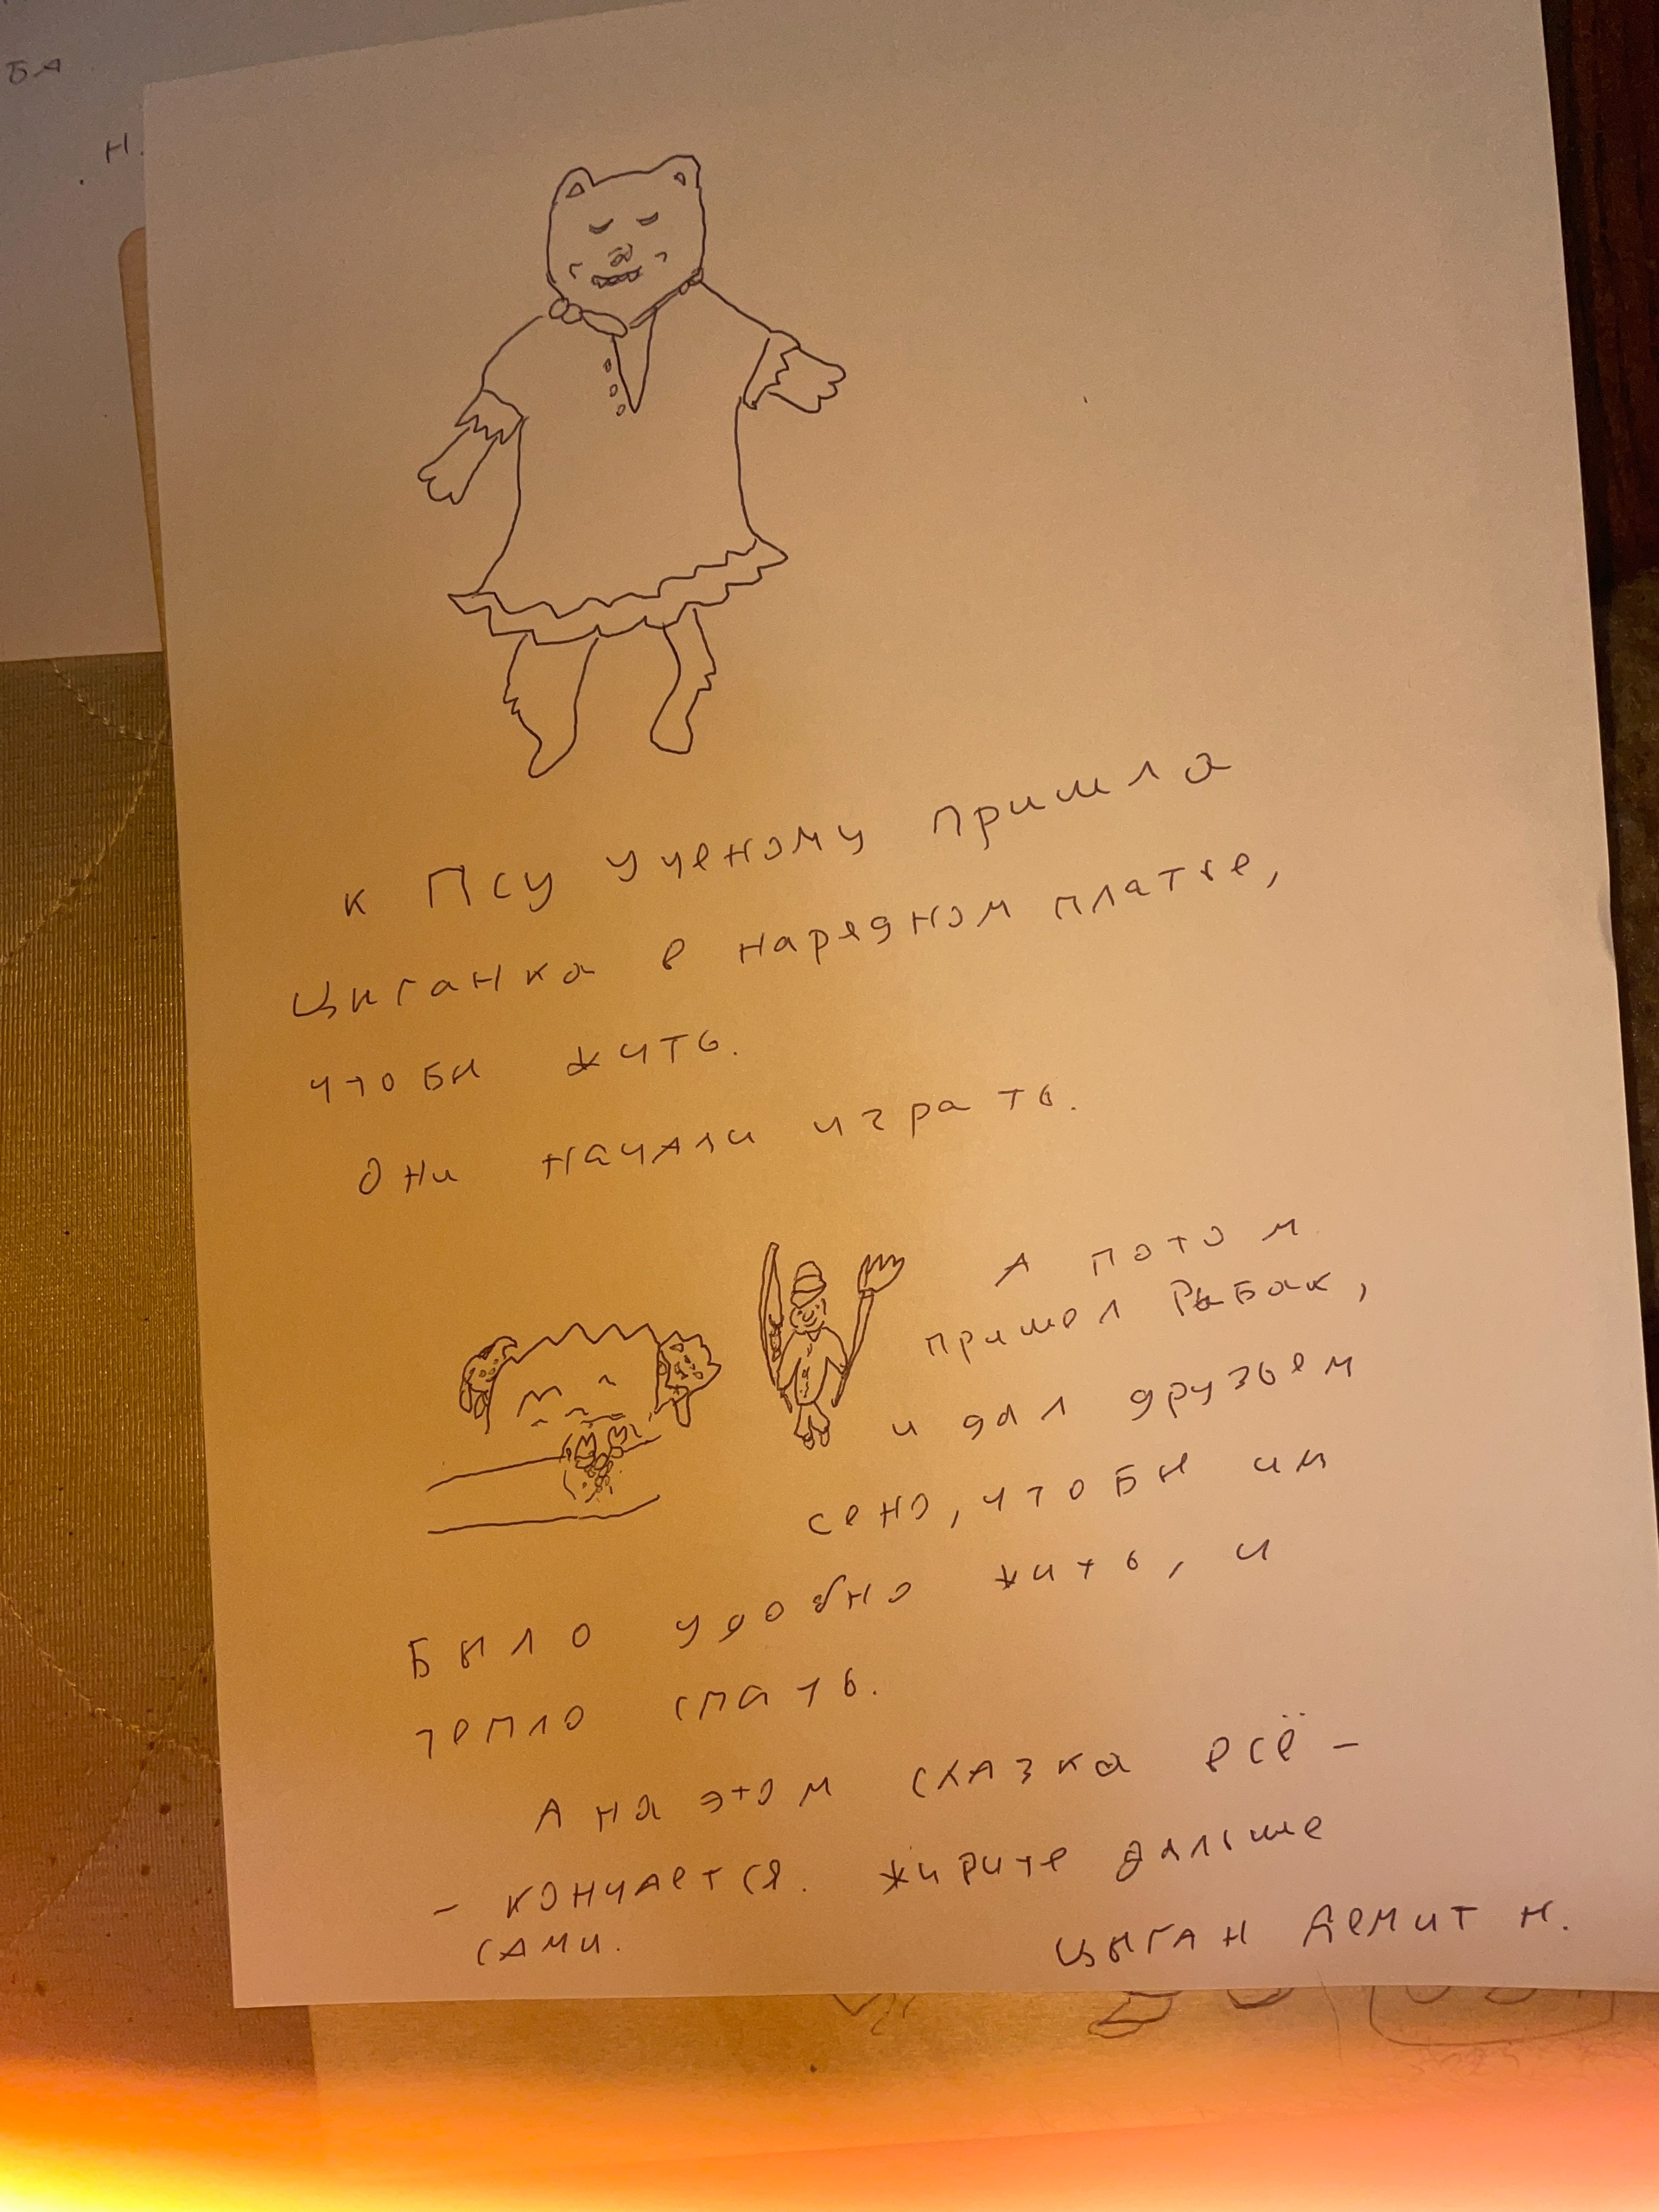 БА
Н.
к Псу ученому пришла
Цыганка в нарядном платье,
чтобы жить.
Они начали играть.
А потом
пришел Рыбак,
и дал друзьем
сено, чтобы им
Было удобно жить, и
тепло спать.
А на этом сказка всё –
– кончается. живите дальше
сами.
цыган Демит Н.